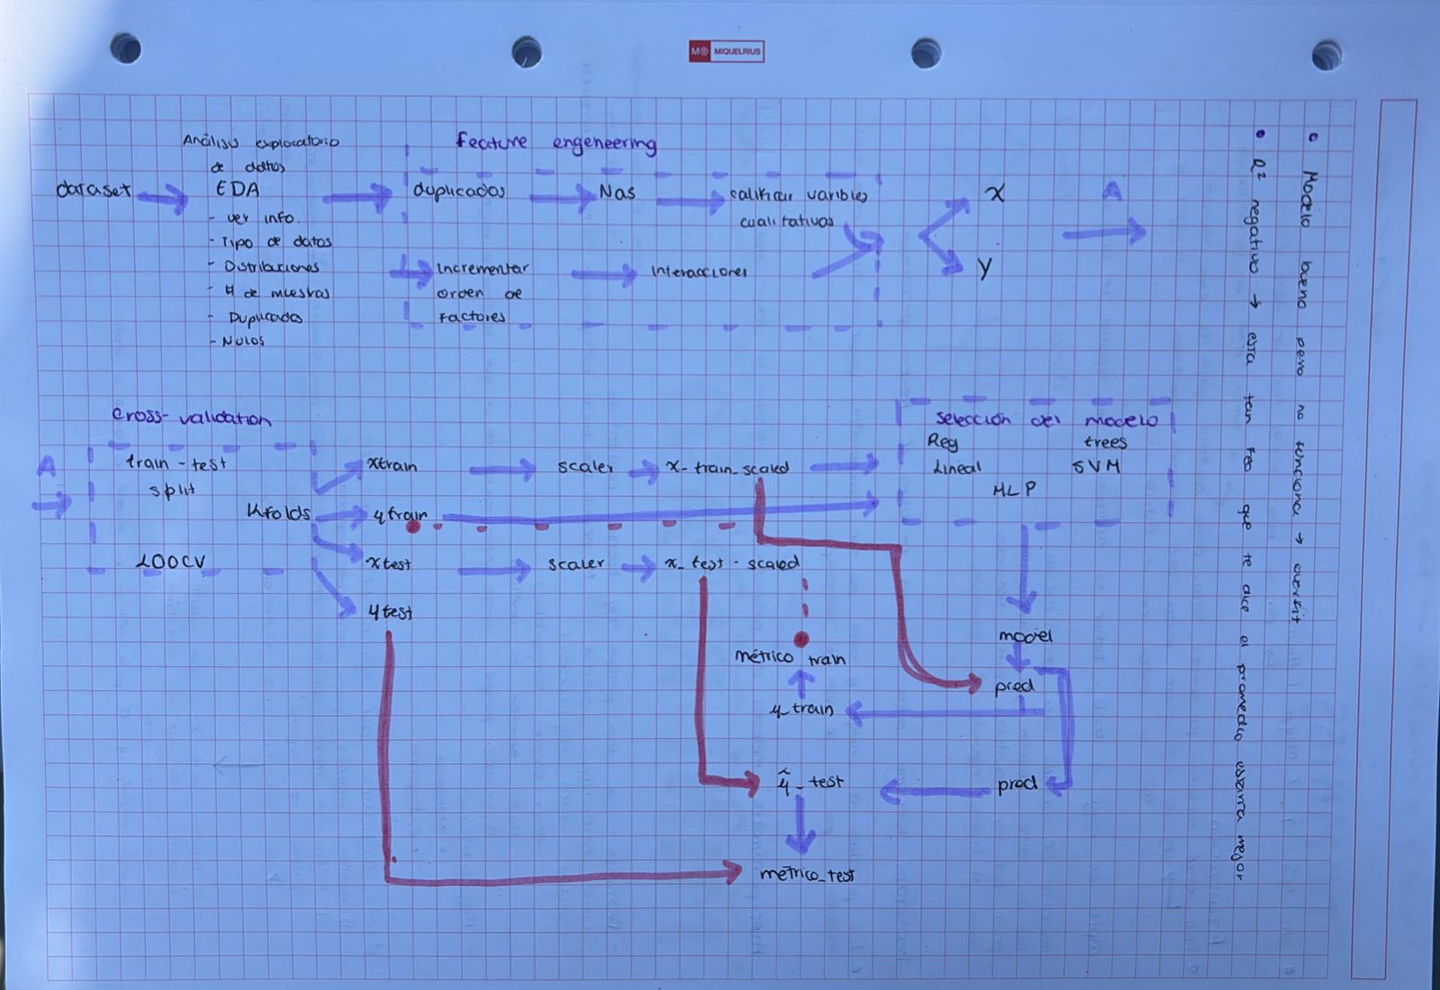 M® MIQUELRIUS
Análisis exploratorio
de datos
dataset
EDA
- ver info.
- Tipo de datos
- Distribuciones
- # de muestras
- Duplicados
- Nulos
Feature engeneering
duplicados
Nas
calificar varibles
cualitativas
Incrementar
orden de
Factores
Interacciones
X
Y
A
Cross-validation
A
train-test
split
Kfolds
LOOCV
xtrain
scaler
x-train_scaled
ytrain
xtest
scaler
x_test-scaled
ytest
Selección del modelo
Reg
Lineal
trees
SVM
MLP
model
métrico train
pred
y_train
ŷ_test
pred
métrico_test
• Modelo bueno pero no funciona → overfit
• R² negativo → esta tan feo que te dice el promedio estaria mejor